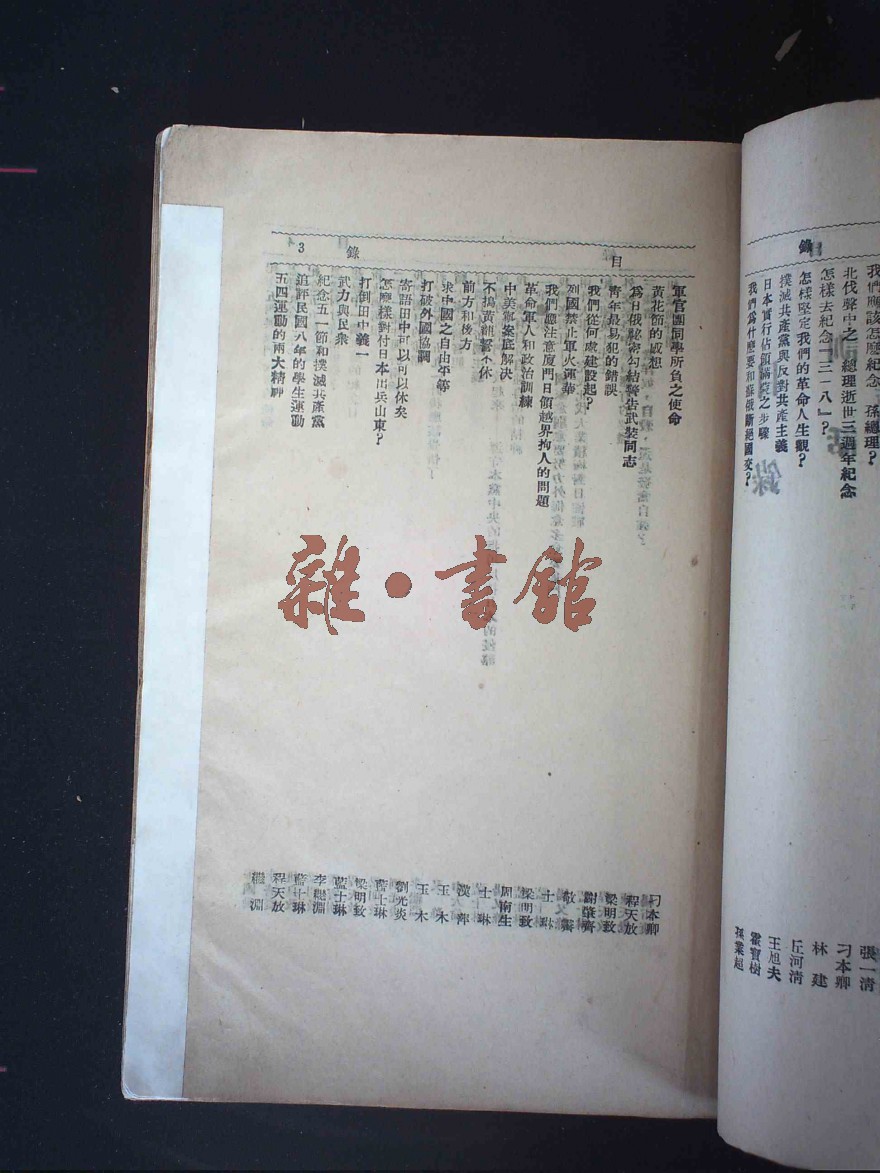 錄
我們應該怎麼紀念 孫總理? 張一清
北伐聲中之 總理逝世三週年紀念 刁本卿
怎樣去紀念『三一八』? 林建
怎樣堅定我們的革命人生觀? 丘河清
撲滅共產黨與反對共產主義 王旭夫
日本實行佔領滿蒙之步驟 霍寶樹
我們爲什麼要和蘇俄斷絕國交? 孫業超
目 錄 3
軍官團同學所負之使命 刁本卿
黃花節的感想 程天放
爲日俄秘密勾結警告武裝同志 梁明致
青年最易犯的錯誤 謝肇齊
我們從何處建設起? 敬齋
列國禁止軍火運華 士琳
我們應注意廈門日領越界拘人的問題 梁明致
革命軍人和政治訓練 周南生
中美寧案底解決 士琳
不搗黃龍誓不休 漢萍
前方和後方 玉木
求中國之自由平等 玉木
打破外國協調 劉光炎
寄語田中可以可以休矣 藍士琳
怎麼樣對付日本出兵山東? 梁明致
打倒田中義一 藍士琳
武力與民衆 李緹淵
紀念五一節和撲滅共產黨 藍士琳
追評民國八年的學生運動 程天放
五四運動的兩大精神 繼淵
雜·書館